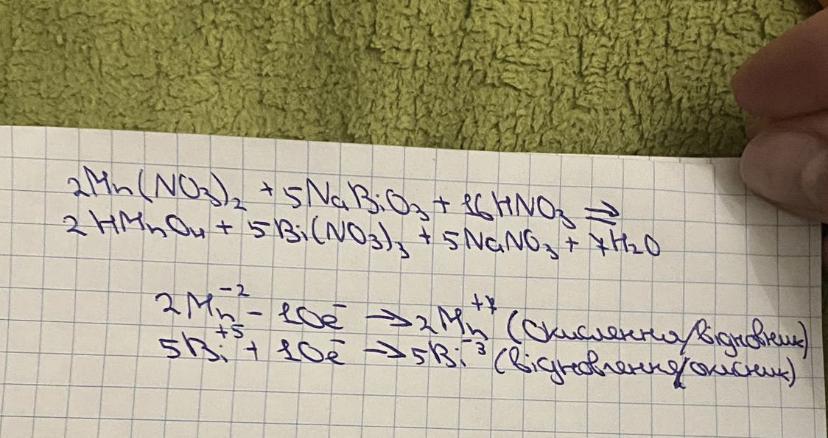 2Mn(NO₃)₂ + 5NaBiO₃ + 16HNO₃ ⇒
2HMnO₄ + 5Bi(NO₃)₃ + 5NaNO₃ + 7H₂O
2Mn⁻² - 10e̅ → 2Mn⁺⁷ (окислення/відновник)
5Bi⁺⁵ + 10e̅ → 5Bi⁻³ (відновлення/окисник)